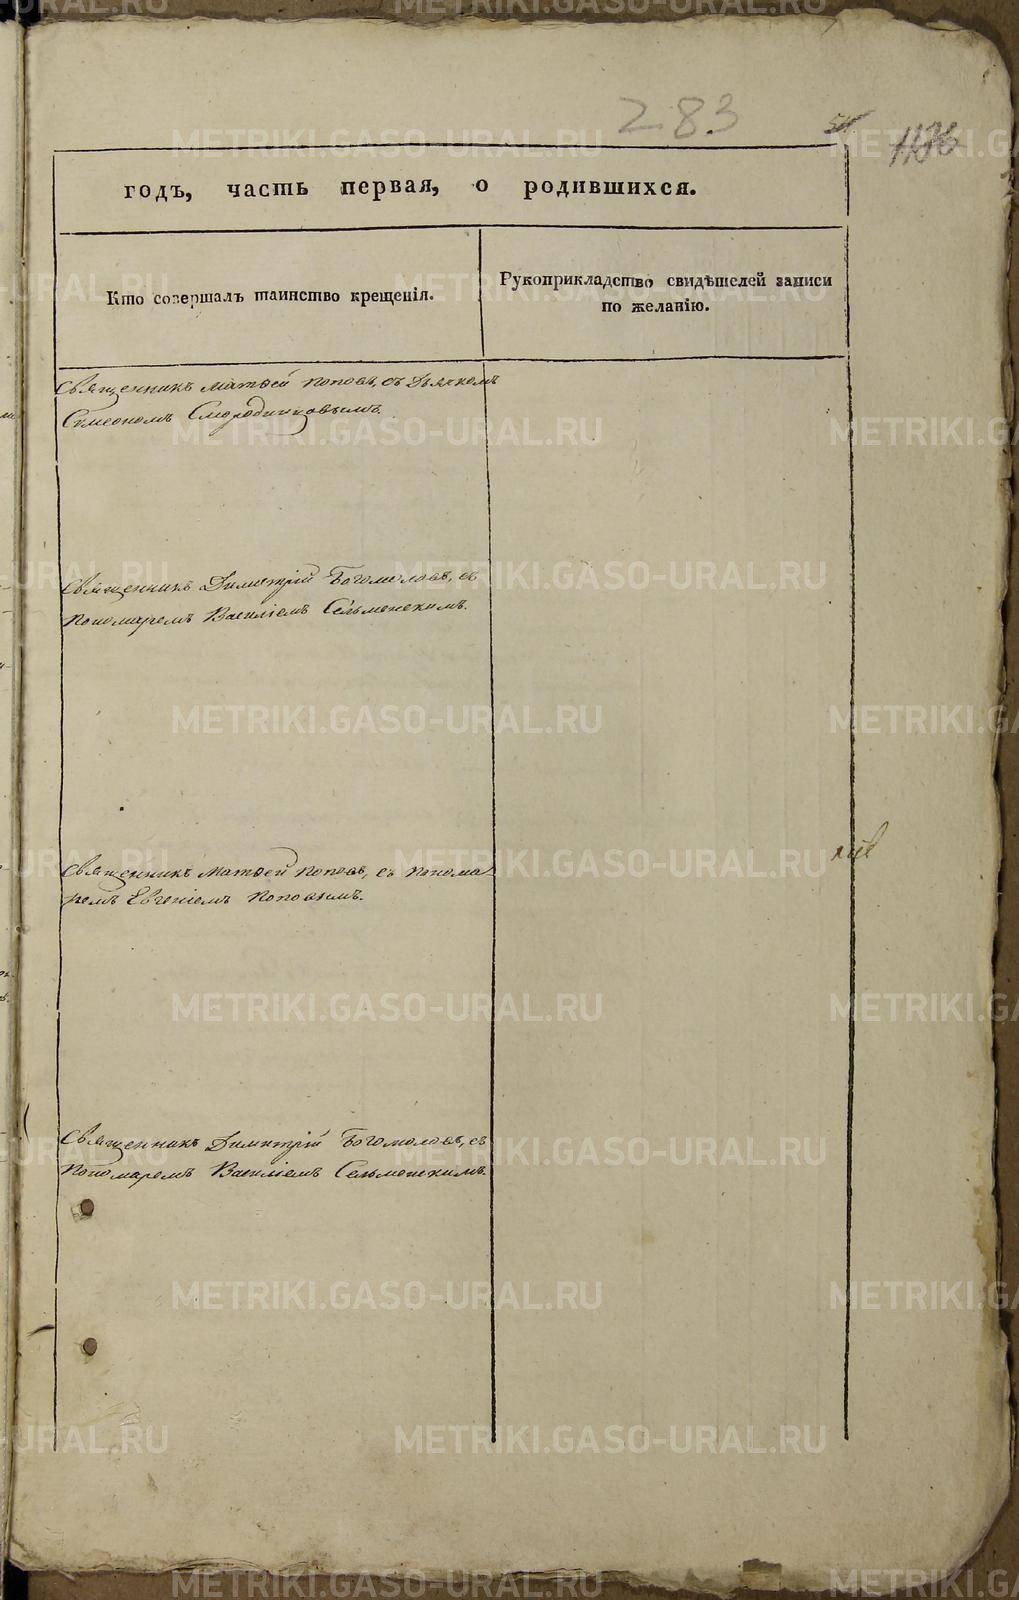 283
годъ, часть первая, о родившихся.
Кто совершалъ таинство крещенія.
Рукоприкладство свидѣтелей записи
по желанію.
Священникъ Матѳей Поповъ, съ Дьячкомъ
Симеономъ Смородинцовымъ.
Священникъ Димитрій Богомоловъ, съ
Пономаремъ Василіемъ Сельменскимъ.
Священникъ Матѳей Поповъ, съ Понома
ремъ Евгеніемъ Поповымъ.
Священникъ Димитрій Богомоловъ, съ
Пономаремъ Василіемъ Сельменскимъ.
METRIKI.GASO-URAL.RU